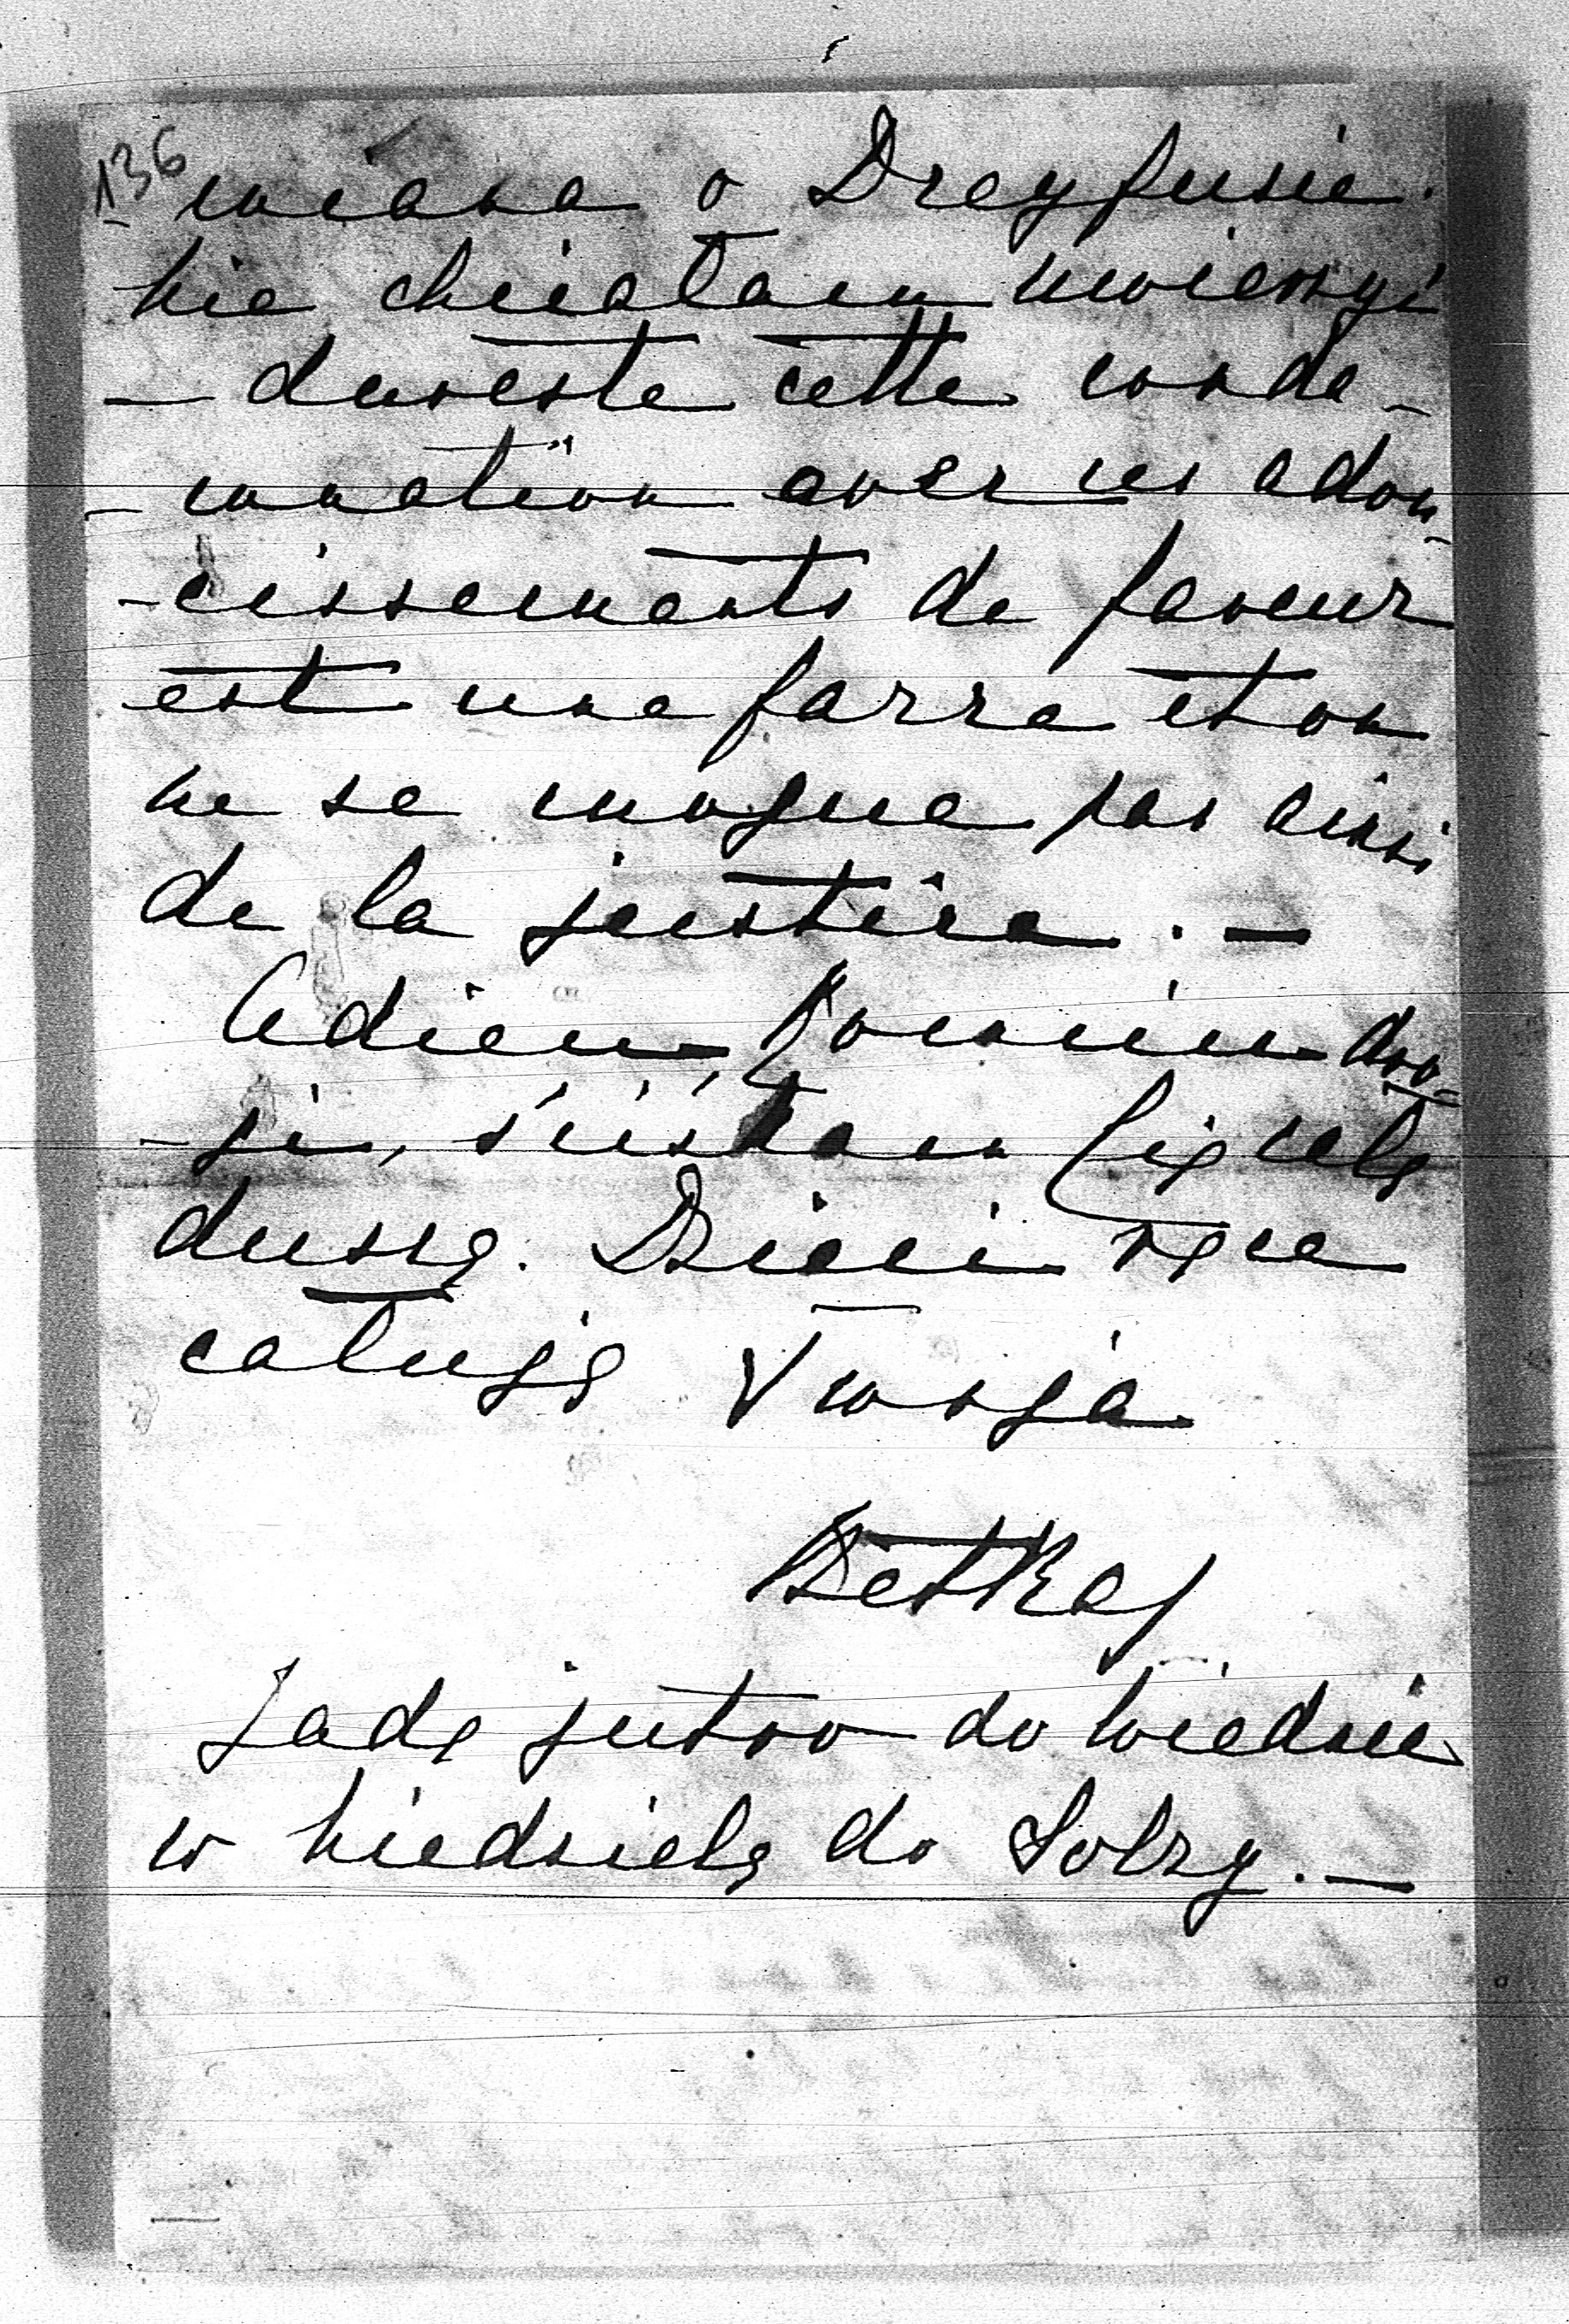 136
miana o Dreyfusie.
nie chciałam uwierzyć
- du reste cette conda-
- mnation avec ces adou-
- cissements de faveur
est une farce et on
ne se moque pas ainsi
de la justice. -
Adieu, Koniu dro-
- gi, ściskam Cię całą
duszą. Dzieci ręce
całuję Twoja
Betka
Jadę jutro do Wiednia
w niedzielę do Solzy. -